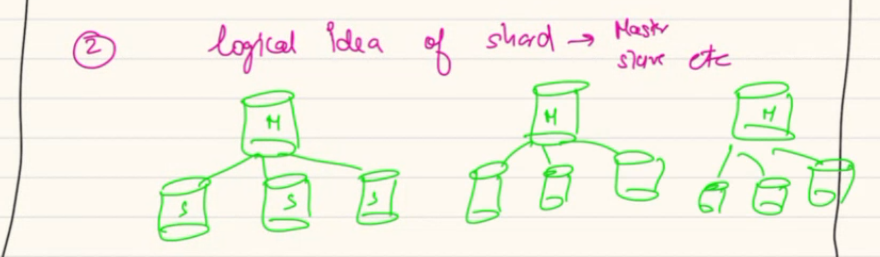 ② logical Idea of shard → Master
slave etc
M M M
S S S